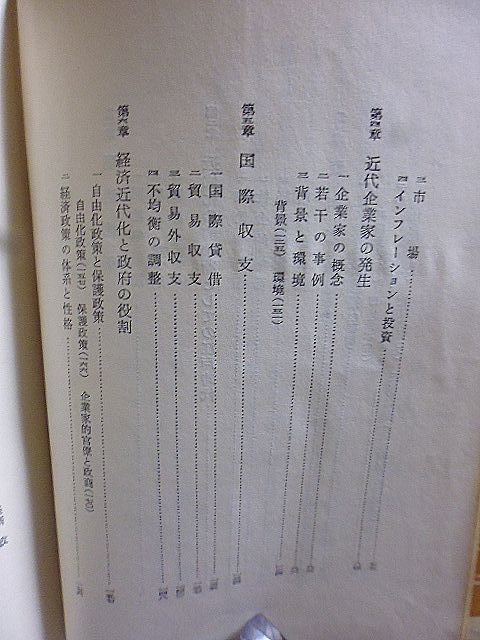 三 市場
四 インフレーションと投資
第四章 近代企業家の発生
一 企業家の概念
二 若干の事例
三 背景と環境
背景(一二五) 環境(一三一)
第五章 国際収支
一 国際貸借
二 貿易収支
三 貿易外収支
四 不均衡の調整
第六章 経済近代化と政府の役割
一 自由化政策と保護政策
自由化政策(一五七) 保護政策(一六六) 企業家的官僚と政商(一七〇)
二 経済政策の体系と性格